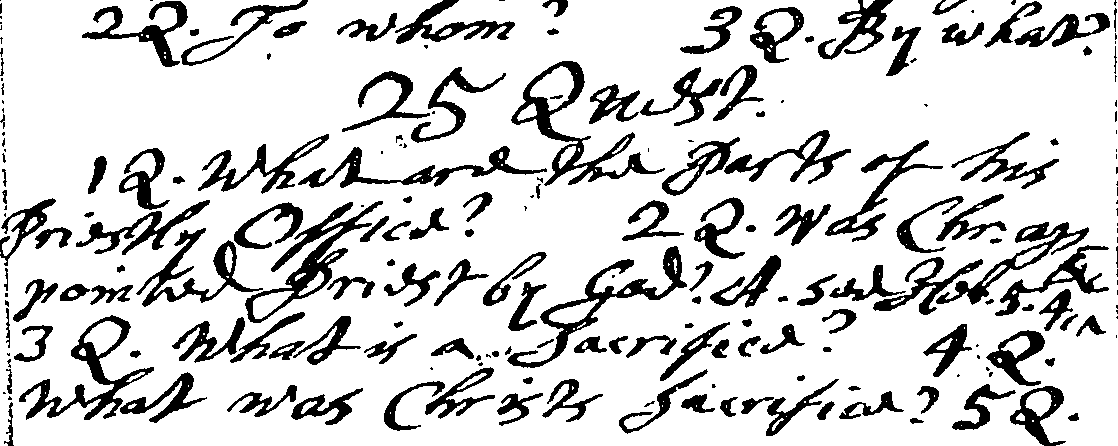 2 Q. To whom? 3 Q. By what?
25 Quest.
1 Q. What are the Parts of his
Priestly Office? 2 Q. Was Chr. ap
pointed Priest by God? A. see Heb. 5. 4
3 Q. What is a Sacrifice? 4 Q.
What was Christs Sacrifice? 5 Q.